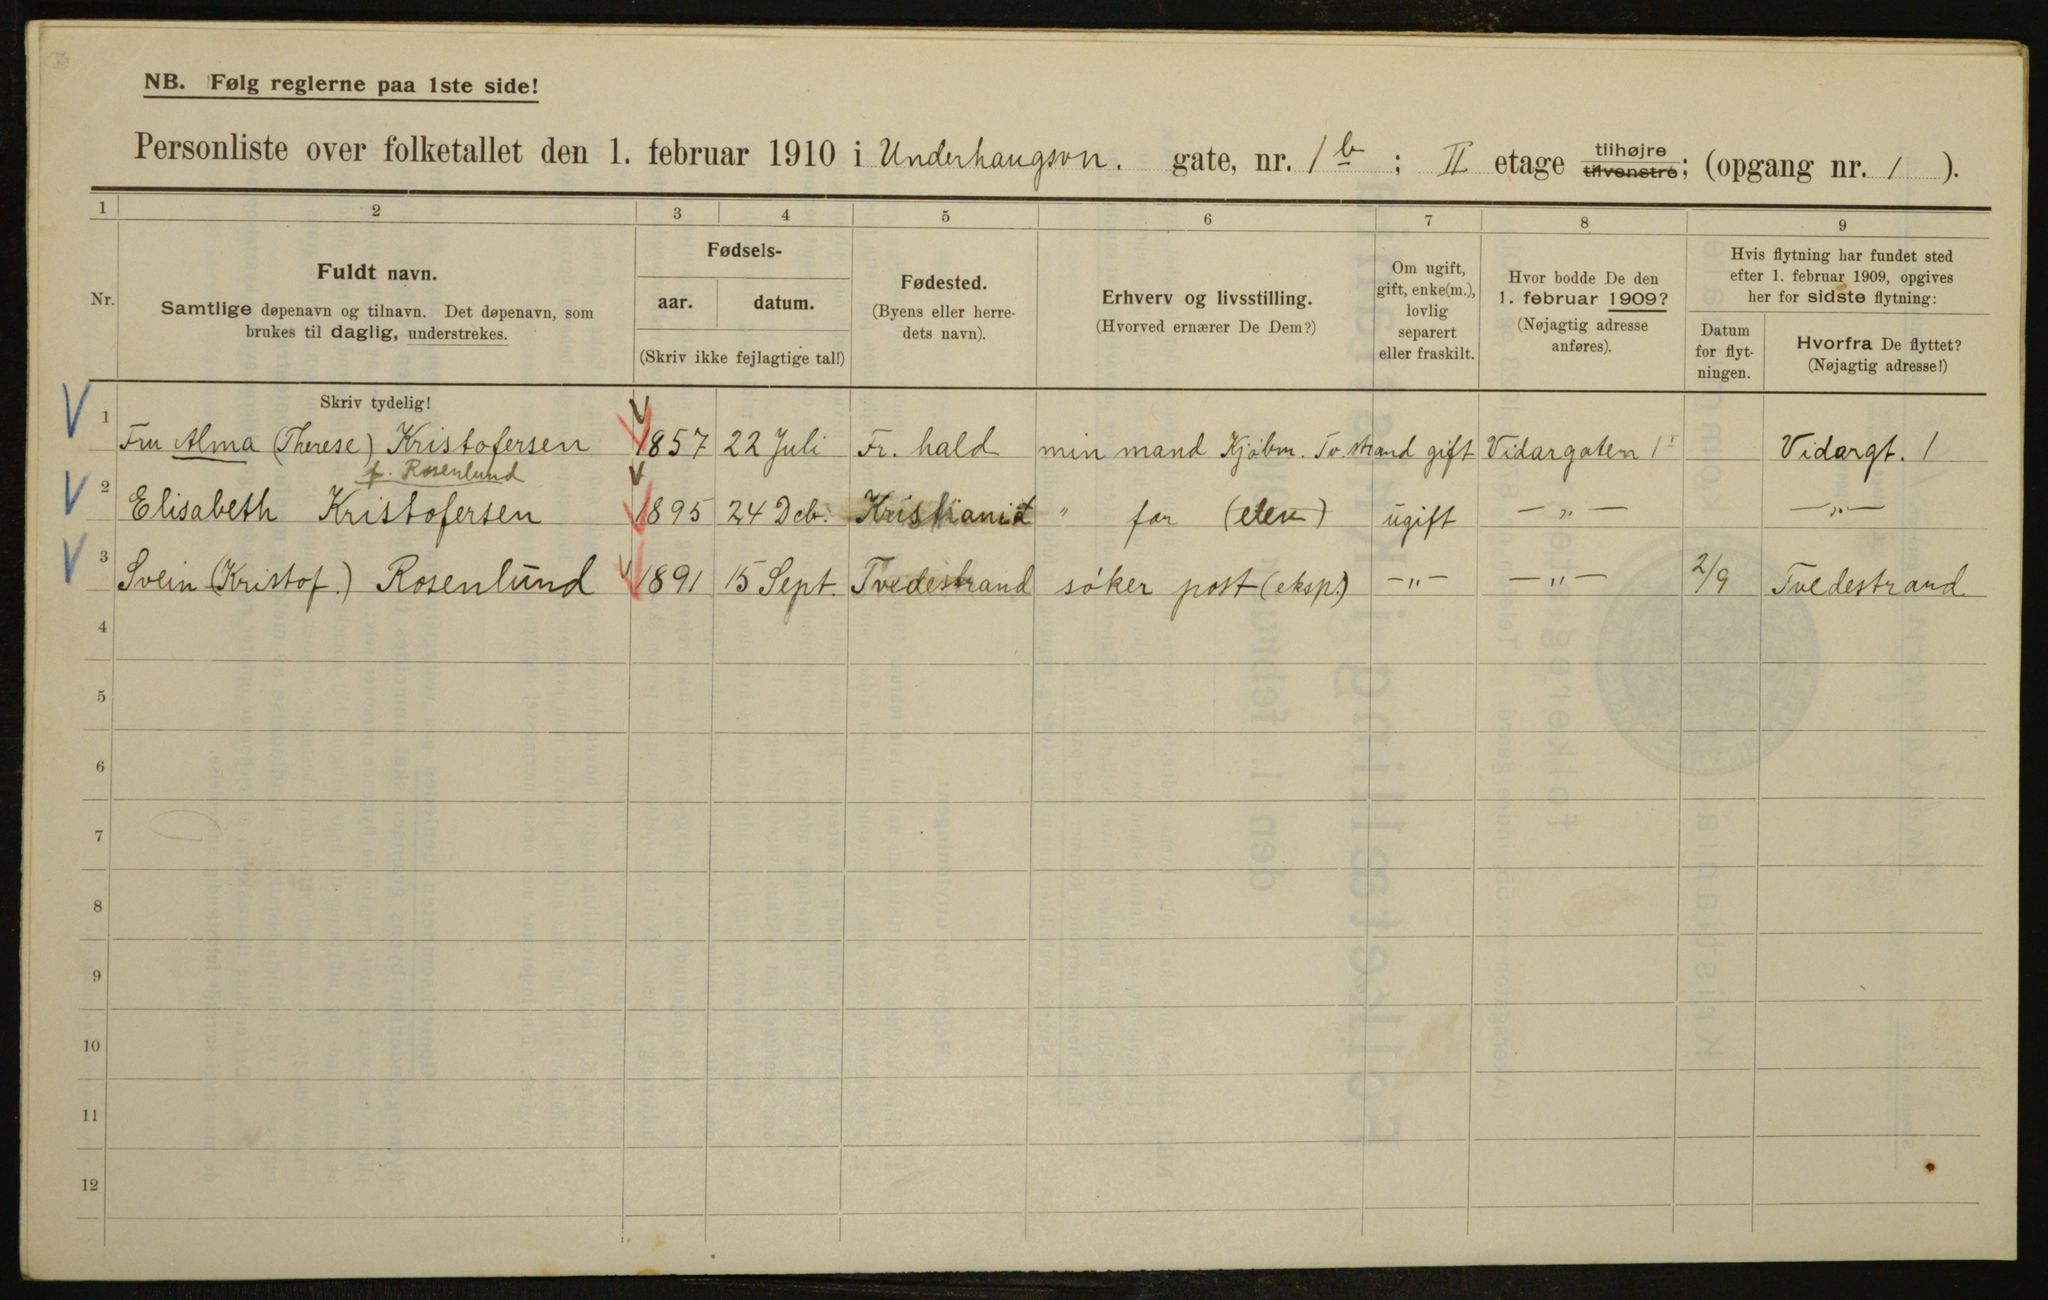 NB. Følg reglerne paa 1ste side!
Personliste over folketallet den 1. februar 1910 i Underhaugsvn. gate, nr. 1 b ; II etage tilhøjre tilvenstre; (opgang nr. 1 ).
1 2 3 4 5 6 7 8 9
Nr.
Fuldt navn.
Samtlige døpenavn og tilnavn. Det døpenavn, som
brukes til daglig, understrekes.
Skriv tydelig!
Fødsels-
aar. datum.
(Skriv ikke fejlagtige tal!)
Fødested.
(Byens eller herre-
dets navn).
Erhverv og livsstilling.
(Hvorved ernærer De Dem?)
Om ugift,
gift, enke(m.),
lovlig
separert
eller fraskilt.
Hvor bodde De den
1. februar 1909?
(Nøjagtig adresse
anføres).
Hvis flytning har fundet sted
efter 1. februar 1909, opgives
her for sidste flytning:
Datum
for flyt-
ningen.
Hvorfra De flyttet?
(Nøjagtig adresse!)
1 Fru Alma (Therese) Kristofersen 1857 22 Juli Fr. hald min mand Kjøbm. Tv.strand gift Vidargaten 1 Vidargt. 1
f. Rosenlund
2 Elisabeth Kristofersen 1895 24 Dcb. Kristiania " far (elev) ugift —"— —"—
3 Svein (Kristof.) Rosenlund 1891 15 Sept. Tvedestrand søker post (eksp.) —"— —"— 2/9 Tvedestrand
4
5
6
7
8
9
10
11
12